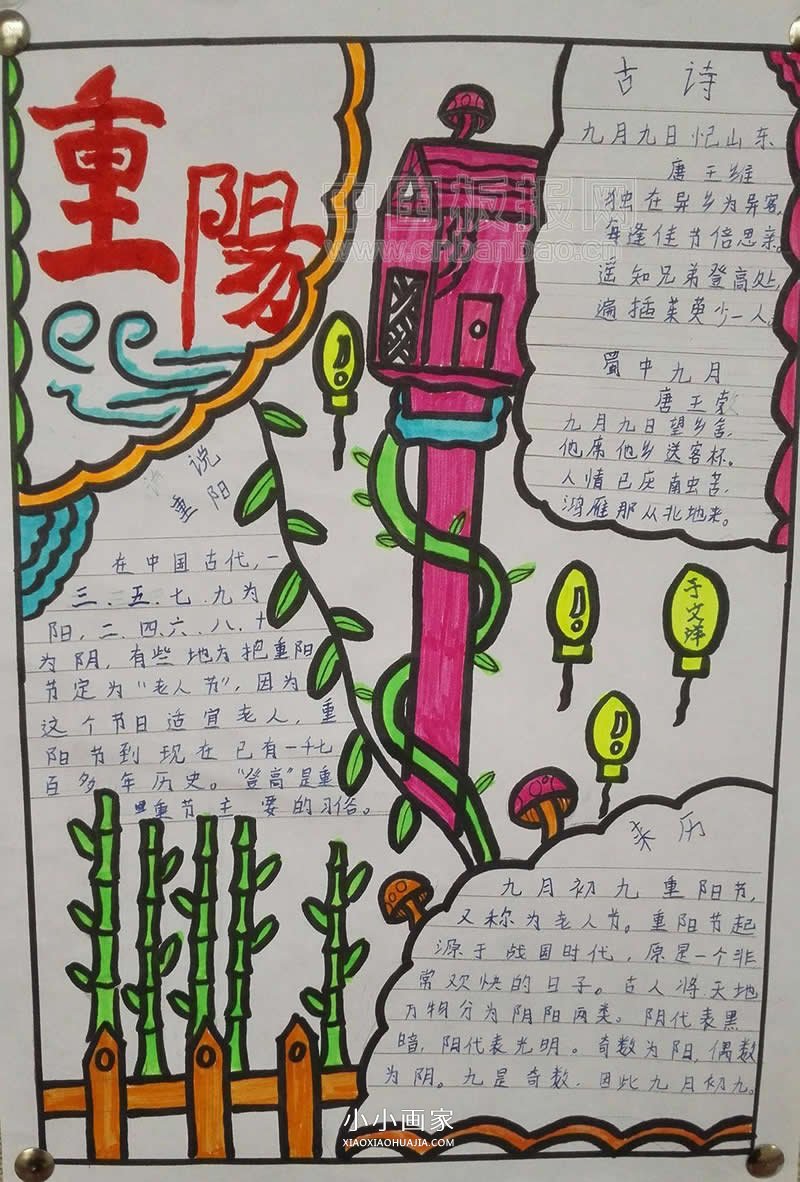 重陽
古诗
九月九日忆山东
唐王维
独在异乡为异客,
每逢佳节倍思亲。
遥知兄弟登高处,
遍插茱萸少一人。
蜀中九月
唐王勃
九月九日望乡台,
他席他乡送客杯。
人情已厌南中苦,
鸿雁那从北地来。
中国板报网
www.cnbanbao.cn
说
重阳
在中国古代,一
三.五.七.九为
阳,二.四.六.八.十
为阴,有些地方把重阳
节定为“老人节”,因为
这个节日适宜老人,重
阳节到现在已有一千七
百多年历史。“登高”是重
节主要的习俗。
于文洋
来历
九月初九重阳节,
又称为老人节。重阳节起
源于战国时代,原是一个非
常欢快的日子。古人将天地
万物分为阴阳两类。阴代表黑
暗,阳代表光明。奇数为阳,偶数
为阴。九是奇数,因此九月初九。
小小画家
XIAOXIAOHUAJIA.COM